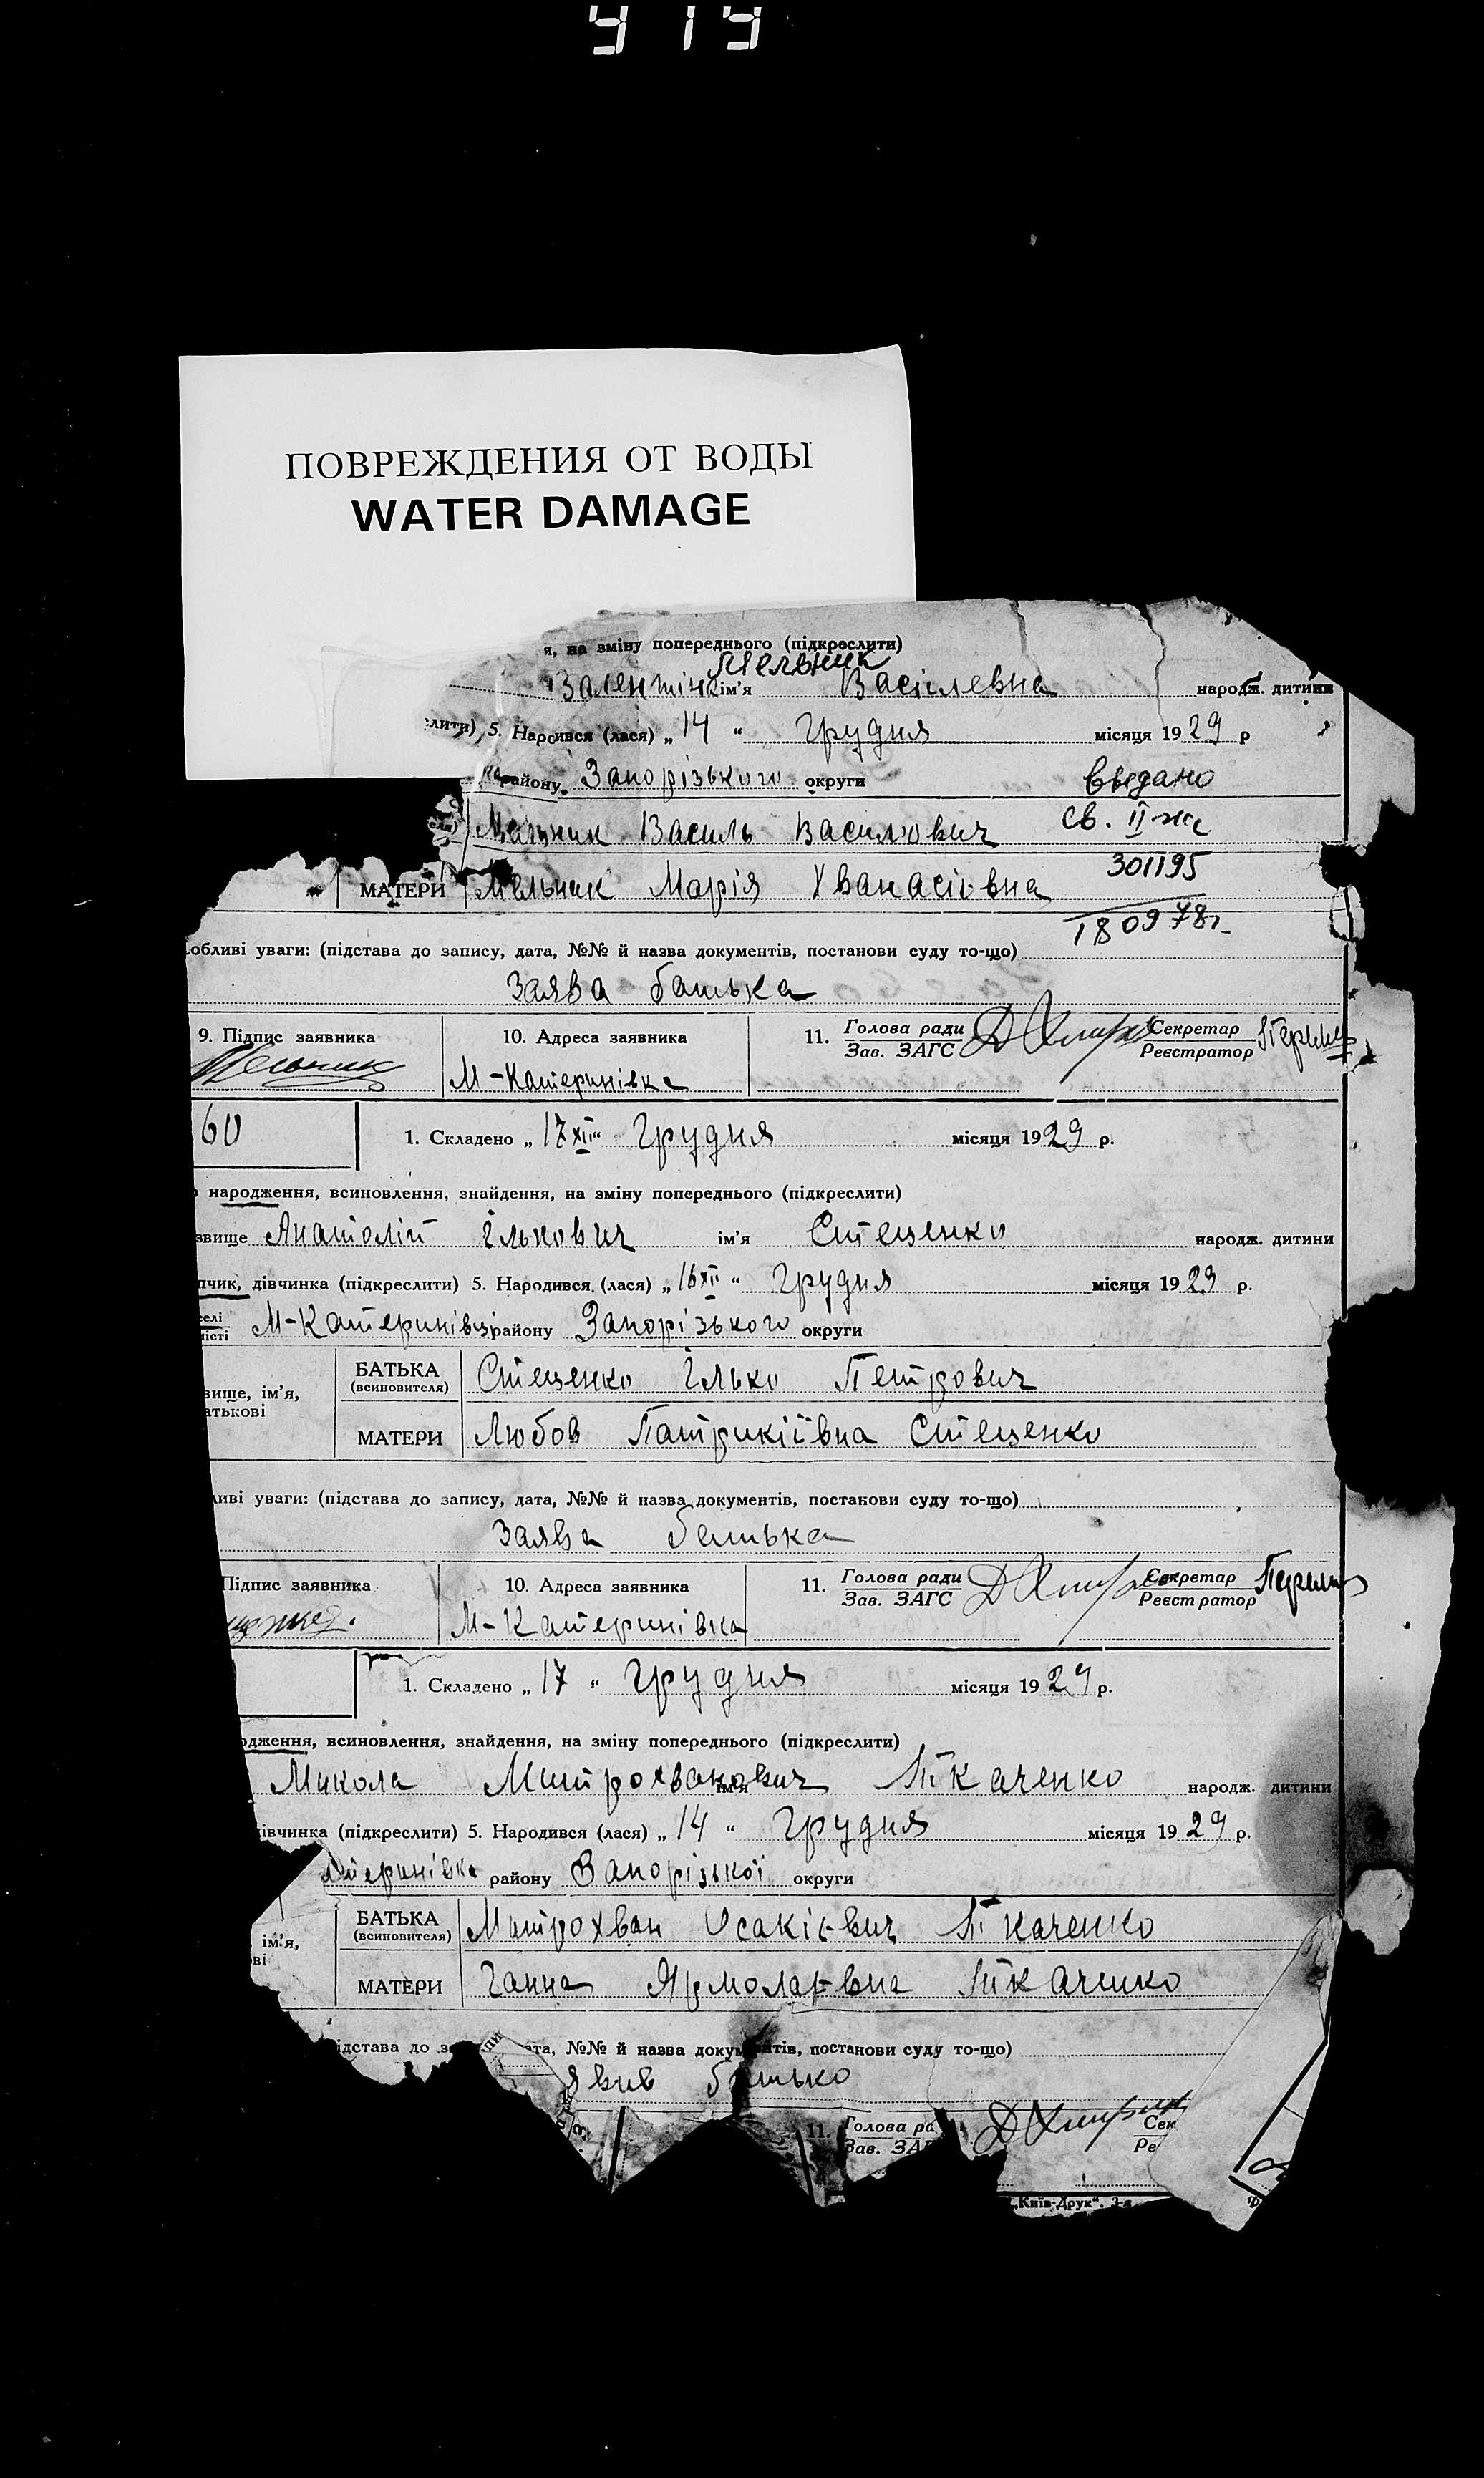 919
ПОВРЕЖДЕНИЯ ОТ ВОДЫ
WATER DAMAGE
я, на зміну попереднього (підкреслити)
Мельник
Валентіна ім'я Васілевна народж. дитини
слити) 5. Народився (лася) „ 14 “ Грудня місяця 1929 р
району Запорізького округи
Введано
Мельник Василь Васильович
св. II жс
301195
МАТЕРИ Мельник Марія Хванасіївна
18 09 78г.
собливі уваги: (підстава до запису, дата, №№ й назва документів, постанови суду то-що)
Заява батька
9. Підпис заявника 10. Адреса заявника 11. Голова ради Секретар
Зав. ЗАГС Реєстратор
Мельник М-Катеринівка
60 1. Складено „ 17 XII “ Грудня місяця 1929 р.
о народження, всиновлення, знайдення, на зміну попереднього (підкреслити)
звище Анатолій Ількович ім'я Стеценко народж. дитини
пчик, дівчинка (підкреслити) 5. Народився (лася) „ 16 XII “ Грудня місяця 1929 р.
селі
місті М-Катеринівці району Запорізького округи
БАТЬКА
(всиновителя) Стеценко Ілько Петрович
вище, ім'я,
атькові
МАТЕРИ Любов Патрикіївна Стеценко
ливі уваги: (підстава до запису, дата, №№ й назва документів, постанови суду то-що)
Заява батька
Підпис заявника 10. Адреса заявника 11. Голова ради Секретар
Зав. ЗАГС Реєстратор
М-Катеринівка
1. Складено „ 17 “ Грудня місяця 1929 р.
одження, всиновлення, знайдення, на зміну попереднього (підкреслити)
Микола Митрохванович ім'я Ткаченко народж. дитини
івчинка (підкреслити) 5. Народився (лася) „ 14 “ Грудня місяця 1929 р.
атеринівка району Запорізької округи
БАТЬКА
(всиновителя) Митрохван Ісакієвич Ткаченко
ім'я,
ві
МАТЕРИ Ганна Ярмолаївна Ткаченко
ідстава до за ата, №№ й назва документів, постанови суду то-що)
явив батько
11. Голова ра Сек
Зав. ЗАГ Ре
„Київ-Друк“. 3-я